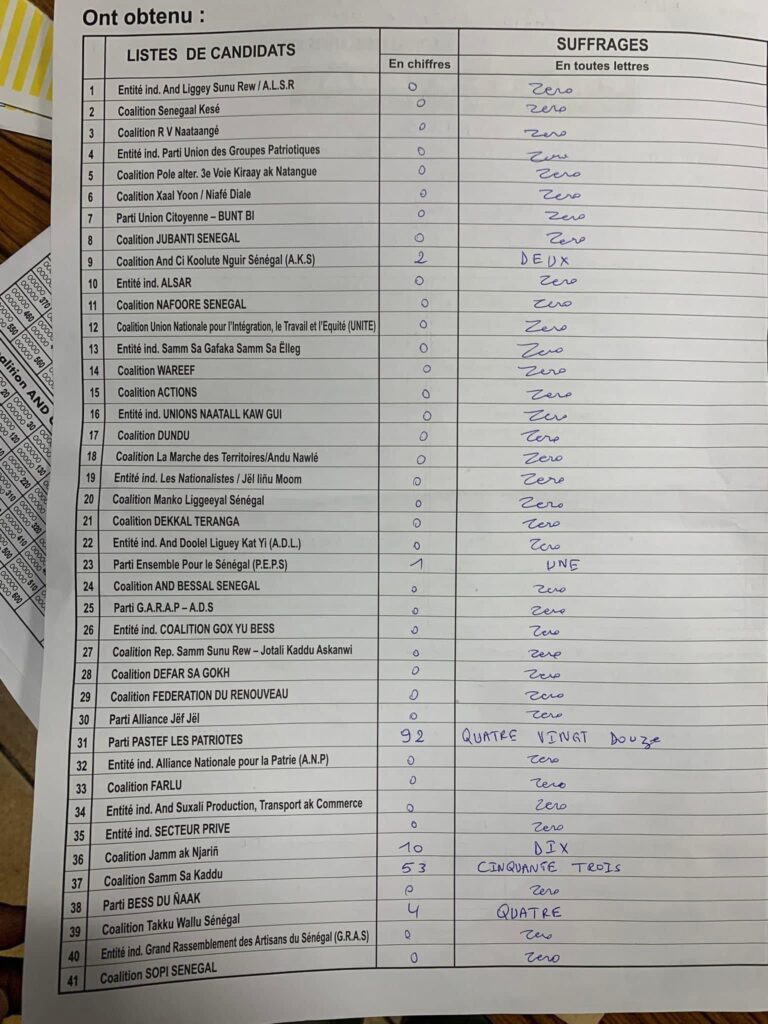 Ont obtenu :
LISTES DE CANDIDATS SUFFRAGES
En chiffres En toutes lettres
1 Entité ind. And Liggey Sunu Rew / A.L.S.R 0 Zero
2 Coalition Senegaal Kesé 0 Zero
3 Coalition R V Naataangé 0 Zero
4 Entité ind. Parti Union des Groupes Patriotiques 0 Zero
5 Coalition Pole alter. 3e Voie Kiraay ak Natangue 0 Zero
6 Coalition Xaal Yoon / Niafé Diale 0 Zero
7 Parti Union Citoyenne – BUNT BI 0 Zero
8 Coalition JUBANTI SENEGAL 0 Zero
9 Coalition And Ci Koolute Nguir Sénégal (A.K.S) 2 DEUX
10 Entité ind. ALSAR 0 Zero
11 Coalition NAFOORE SENEGAL 0 Zero
12 Coalition Union Nationale pour l'Intégration, le Travail et l'Equité (UNITE) 0 Zero
13 Entité ind. Samm Sa Gafaka Samm Sa Ëlleg 0 Zero
14 Coalition WAREEF 0 Zero
15 Coalition ACTIONS 0 Zero
16 Entité ind. UNIONS NAATALL KAW GUI 0 Zero
17 Coalition DUNDU 0 Zero
18 Coalition La Marche des Territoires/Andu Nawlé 0 Zero
19 Entité ind. Les Nationalistes / Jël liñu Moom 0 Zero
20 Coalition Manko Liggeeyal Sénégal 0 Zero
21 Coalition DEKKAL TERANGA 0 Zero
22 Entité ind. And Doolel Liguey Kat Yi (A.D.L.) 0 Zero
23 Parti Ensemble Pour le Sénégal (P.E.P.S) 1 UNE
24 Coalition AND BESSAL SENEGAL 0 Zero
25 Parti G.A.R.A.P – A.D.S 0 Zero
26 Entité ind. COALITION GOX YU BESS 0 Zero
27 Coalition Rep. Samm Sunu Rew – Jotali Kaddu Askanwi 0 Zero
28 Coalition DEFAR SA GOKH 0 Zero
29 Coalition FEDERATION DU RENOUVEAU 0 Zero
30 Parti Alliance Jëf Jël 0 Zero
31 Parti PASTEF LES PATRIOTES 92 QUATRE VINGT DOUZE
32 Entité ind. Alliance Nationale pour la Patrie (A.N.P) 0 Zero
33 Coalition FARLU 0 Zero
34 Entité ind. And Suxali Production, Transport ak Commerce 0 Zero
35 Entité ind. SECTEUR PRIVE 0 Zero
36 Coalition Jamm ak Njariñ 10 DIX
37 Coalition Samm Sa Kaddu 53 CINQUANTE TROIS
38 Parti BESS DU ÑAAK 0 Zero
39 Coalition Takku Wallu Sénégal 4 QUATRE
40 Entité ind. Grand Rassemblement des Artisans du Sénégal (G.R.A.S) 0 Zero
41 Coalition SOPI SENEGAL 0 Zero